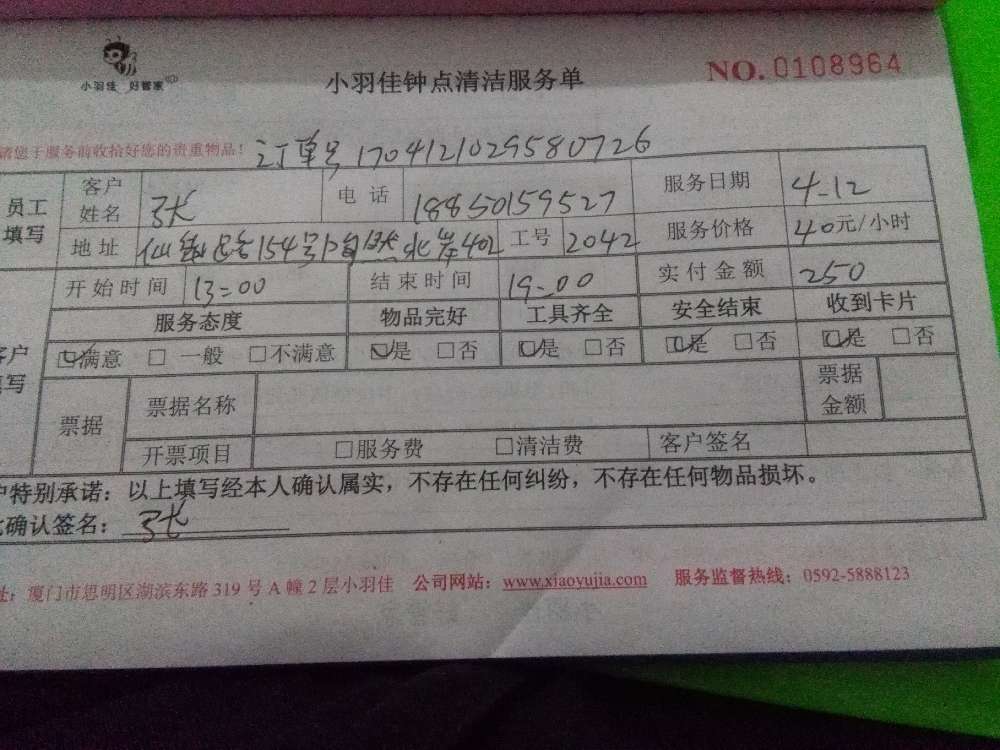 小羽佳 好管家
小羽佳钟点清洁服务单
NO.0108964
请您于服务前收拾好您的贵重物品!
订单号 1704121029580726
员工填写 客户姓名 张 电话 18850159527 服务日期 4-12
地址 路154号 北岸402 工号 2042 服务价格 40元/小时
开始时间 13=00 结束时间 19-00 实付金额 250
服务态度 物品完好 工具齐全 安全结束 收到卡片
客户填写 ☑满意 □一般 □不满意 ☑是 □否 ☑是 □否 ☑是 □否 ☑是 □否
票据 票据名称 票据金额
开票项目 □服务费 □清洁费 客户签名
户特别承诺：以上填写经本人确认属实，不存在任何纠纷，不存在任何物品损坏。
确认签名：张
址：厦门市思明区湖滨东路319号A幢2层小羽佳 公司网站：www.xiaoyujia.com 服务监督热线：0592-5888123